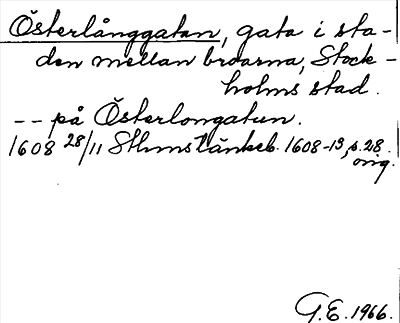 Österlånggatan, gata i sta-
den mellan broarna, Stock-
holms stad.
-- på Österlongatun.
1608 28/11 Sthmstänkeb. 1608-13, s. 28.
orig.
G.E. 1966.